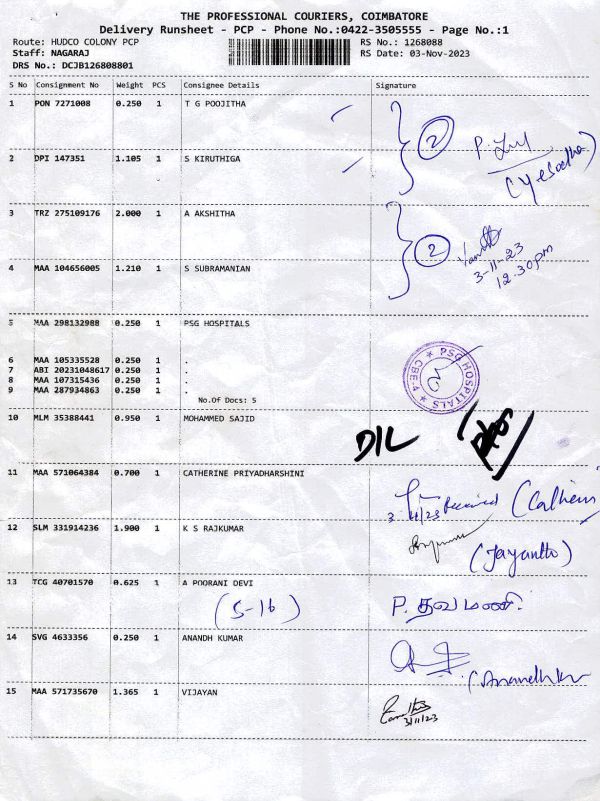 THE PROFESSIONAL COURIERS, COIMBATORE
Delivery Runsheet - PCP - Phone No.:0422-3505555 - Page No.:1
Route: HUDCO COLONY PCP RS No.: 1268088
Staff: NAGARAJ RS Date: 03-Nov-2023
DRS No.: DCJB126808801
S No Consignment No Weight PCS Consignee Details Signature
1 PON 7271008 0.250 1 T G POOJITHA
2
P.
(Yesodha)
2 DPI 147351 1.105 1 S KIRUTHIGA
3 TRZ 275109176 2.000 1 A AKSHITHA
2
3-11-23
12.30pm
4 MAA 104656005 1.210 1 S SUBRAMANIAN
5 MAA 298132988 0.250 1 PSG HOSPITALS
6 MAA 105335528 0.250 1 .
7 ABI 20231048617 0.250 1 .
8 MAA 107315436 0.250 1 .
9 MAA 287934863 0.250 1 .
No.Of Docs: 5
PSG HOSPITALS
CBE-4
10 MLM 35388441 0.950 1 MOHAMMED SAJID
DIL
11 MAA 571064384 0.700 1 CATHERINE PRIYADHARSHINI
3/11/23 Received
12 SLM 331914236 1.900 1 K S RAJKUMAR
(Jayantho)
13 TCG 40701570 0.625 1 A POORANI DEVI
(S-16) P. தவமணி
14 SVG 4633356 0.250 1 ANANDH KUMAR
(Anandhkr
15 MAA 571735670 1.365 1 VIJAYAN
3/11/23